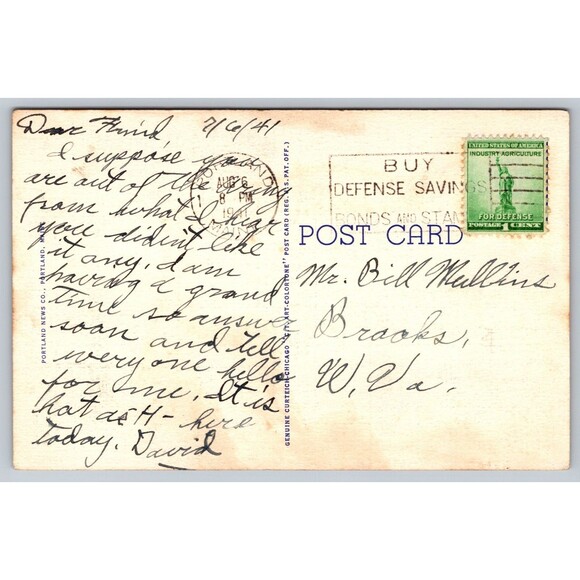 Dear Friend 7/6/41
I suppose you
are out of the
from what I hear
you didint like
it any. I am
having a grand
time so answer
soon and tell
everyone hello
for me. It is
hot as H- here
today. David
PORTLAND
AUG 6
8 PM
1941
MAINE
BUY
DEFENSE SAVINGS
BONDS AND STAM
UNITED STATES OF AMERICA
INDUSTRY AGRICULTURE
FOR DEFENSE
POSTAGE 1 CENT
POST CARD
Mr. Bill Mullins
Brooks,
W. Va.
PORTLAND NEWS CO., PORTLAND, M
GENUINE CURTEICH-CHICAGO "C.T. ART-COLORTONE" POST CARD (REG. U.S. PAT. OFF.)